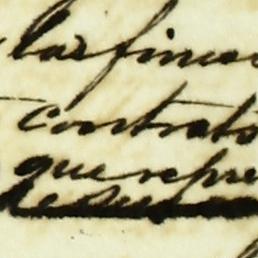 las fincas
contrato
que repre
de su